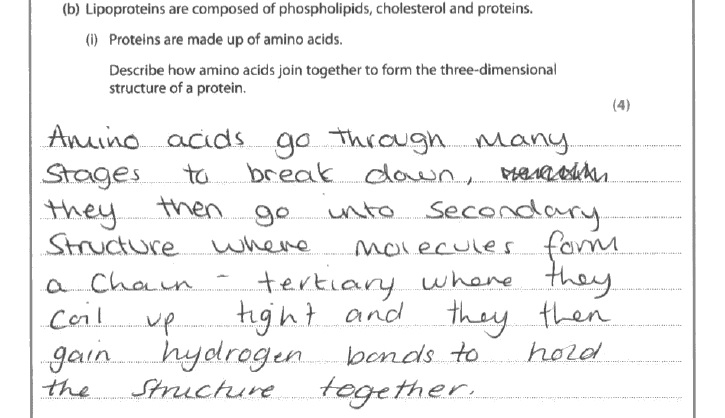 (b) Lipoproteins are composed of phospholipids, cholesterol and proteins.
(i) Proteins are made up of amino acids.
Describe how amino acids join together to form the three-dimensional
structure of a protein.
(4)
Amino acids go through many
stages to break down,
they then go into secondary
structure where molecules form
a chain - tertiary where they
coil up tight and they then
gain hydrogen bonds to hold
the structure together.